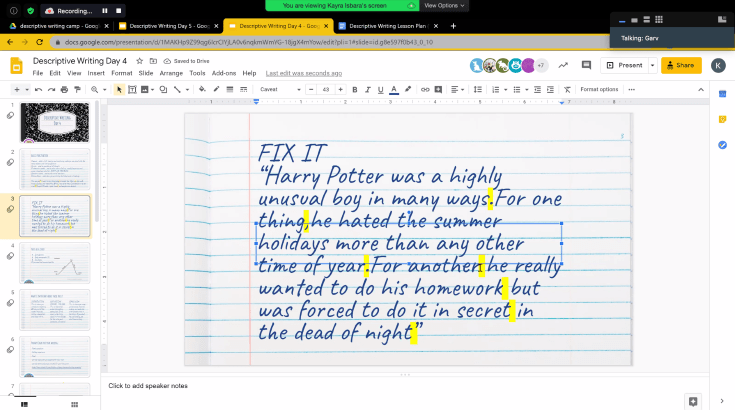 Recording...
You are viewing Kayra Isbara's screen
View Options
descriptive writing camp - Googl
Descriptive Writing Day 5 - Goo
Descriptive Writing Day 4 - Goo
Descriptive Writing Lesson Plan
Talking: Garv
Descriptive Writing Day 4
Saved to Drive
File Edit View Insert Format Slide Arrange Tools Add-ons Help Last edit was seconds ago
+7
Present
Share
K
Caveat
43
B I U A
Format options
FIX IT
“Harry Potter was a highly
unusual boy in many ways.For one
thing,he hated the summer
holidays more than any other
time of year.For another he really
wanted to do his homework but
was forced to do it in secret in
the dead of night”
1
2
3
4
5
6
7
Click to add speaker notes